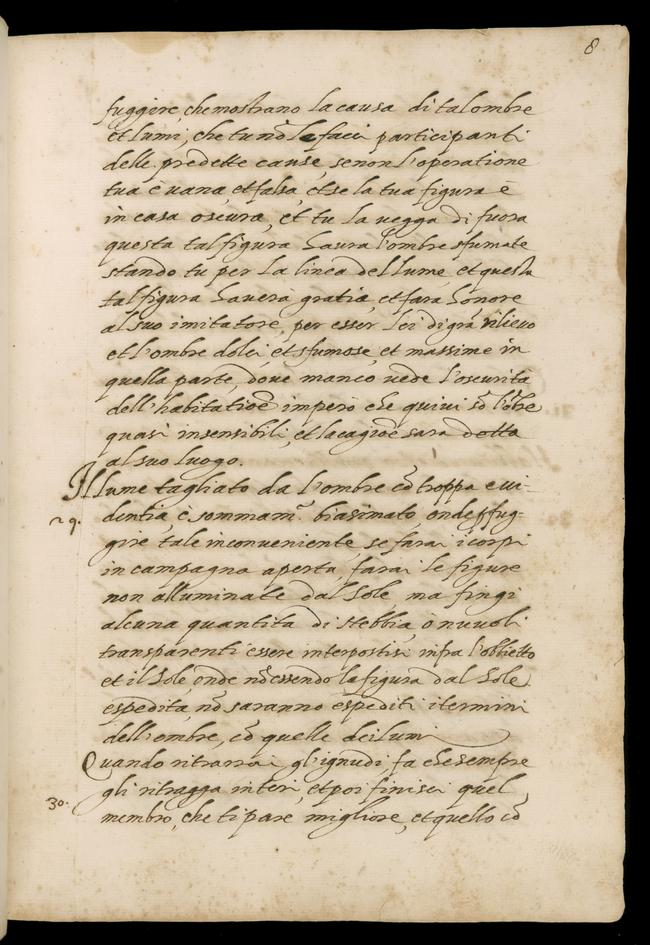 8
fuggire, che mostrano la causa di tal ombre
et lumi, che tu nõ le faci participanti
delle predette cause, se non l'operatione
tua è uana, et falsa, et se la tua figura è
in casa oscura, et tu la uegga di fuora
questa tal figura haura l'ombre sfumate
stando tu per la linea del lume, et questa
tal figura hauerà gratia, et fara honore
al suo imitatore, per esser lei di grã rilieuo
et l'ombre dolci, et sfumose, et massime in
quella parte, doue manco uede l'oscurità
dell'habitatioẽ imperò che quiui sõ l'õbre
quasi insensibili, et la cagioẽ sara detta
al suo luogo.
Il lume tagliato da l'ombre cõ troppa eui-
29. dentia, è sommam.e biasimato, onde p fug-
gire tale inconueniente, se farai i corpi
in campagna aperta, farai le figure
non alluminate dal sole, ma fingi
alcuna quantità di nebbia, ò nuuoli
transparenti essere interposti infra l'obbietto
et il sole, onde nõ essendo la figura dal sole
espedita, nõ saranno espediti i termini
dell'ombre, cõ quelle dei lumi
Quando ritrarrai gl'ignudi, fa che sempre
gli ritragga interi, et poi finisci quel
30. membro, che ti pare migliore, et quello cõ